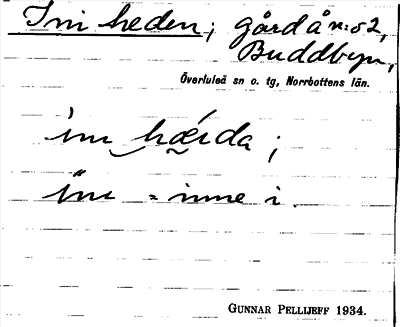 Ini heden; gård å n:o 2,
Buddbyn,
Överluleå sn o. tg, Norrbottens län.
ini hærda;
ini = inne i.
GUNNAR PELLIJEFF 1934.